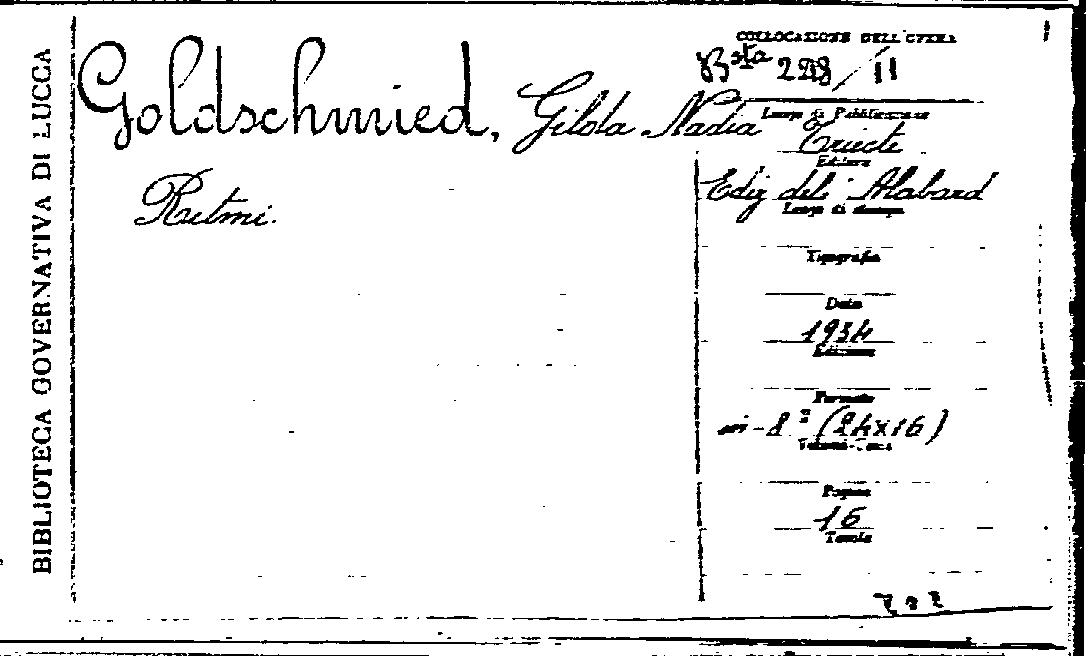 BIBLIOTECA GOVERNATIVA DI LUCCA
Goldschmied, Gilda Nadia
Ritmi.
COLLOCAZIONE DELL'OPERA
Bsta 228/11
Luogo di Pubblicazione
Trieste
Editore
Ediz dell' Alabard
Luogo di stampa
Tipografia
Data
1934
Edizione
Formato
in-8º (24x16)
Pagine
16
Tavole